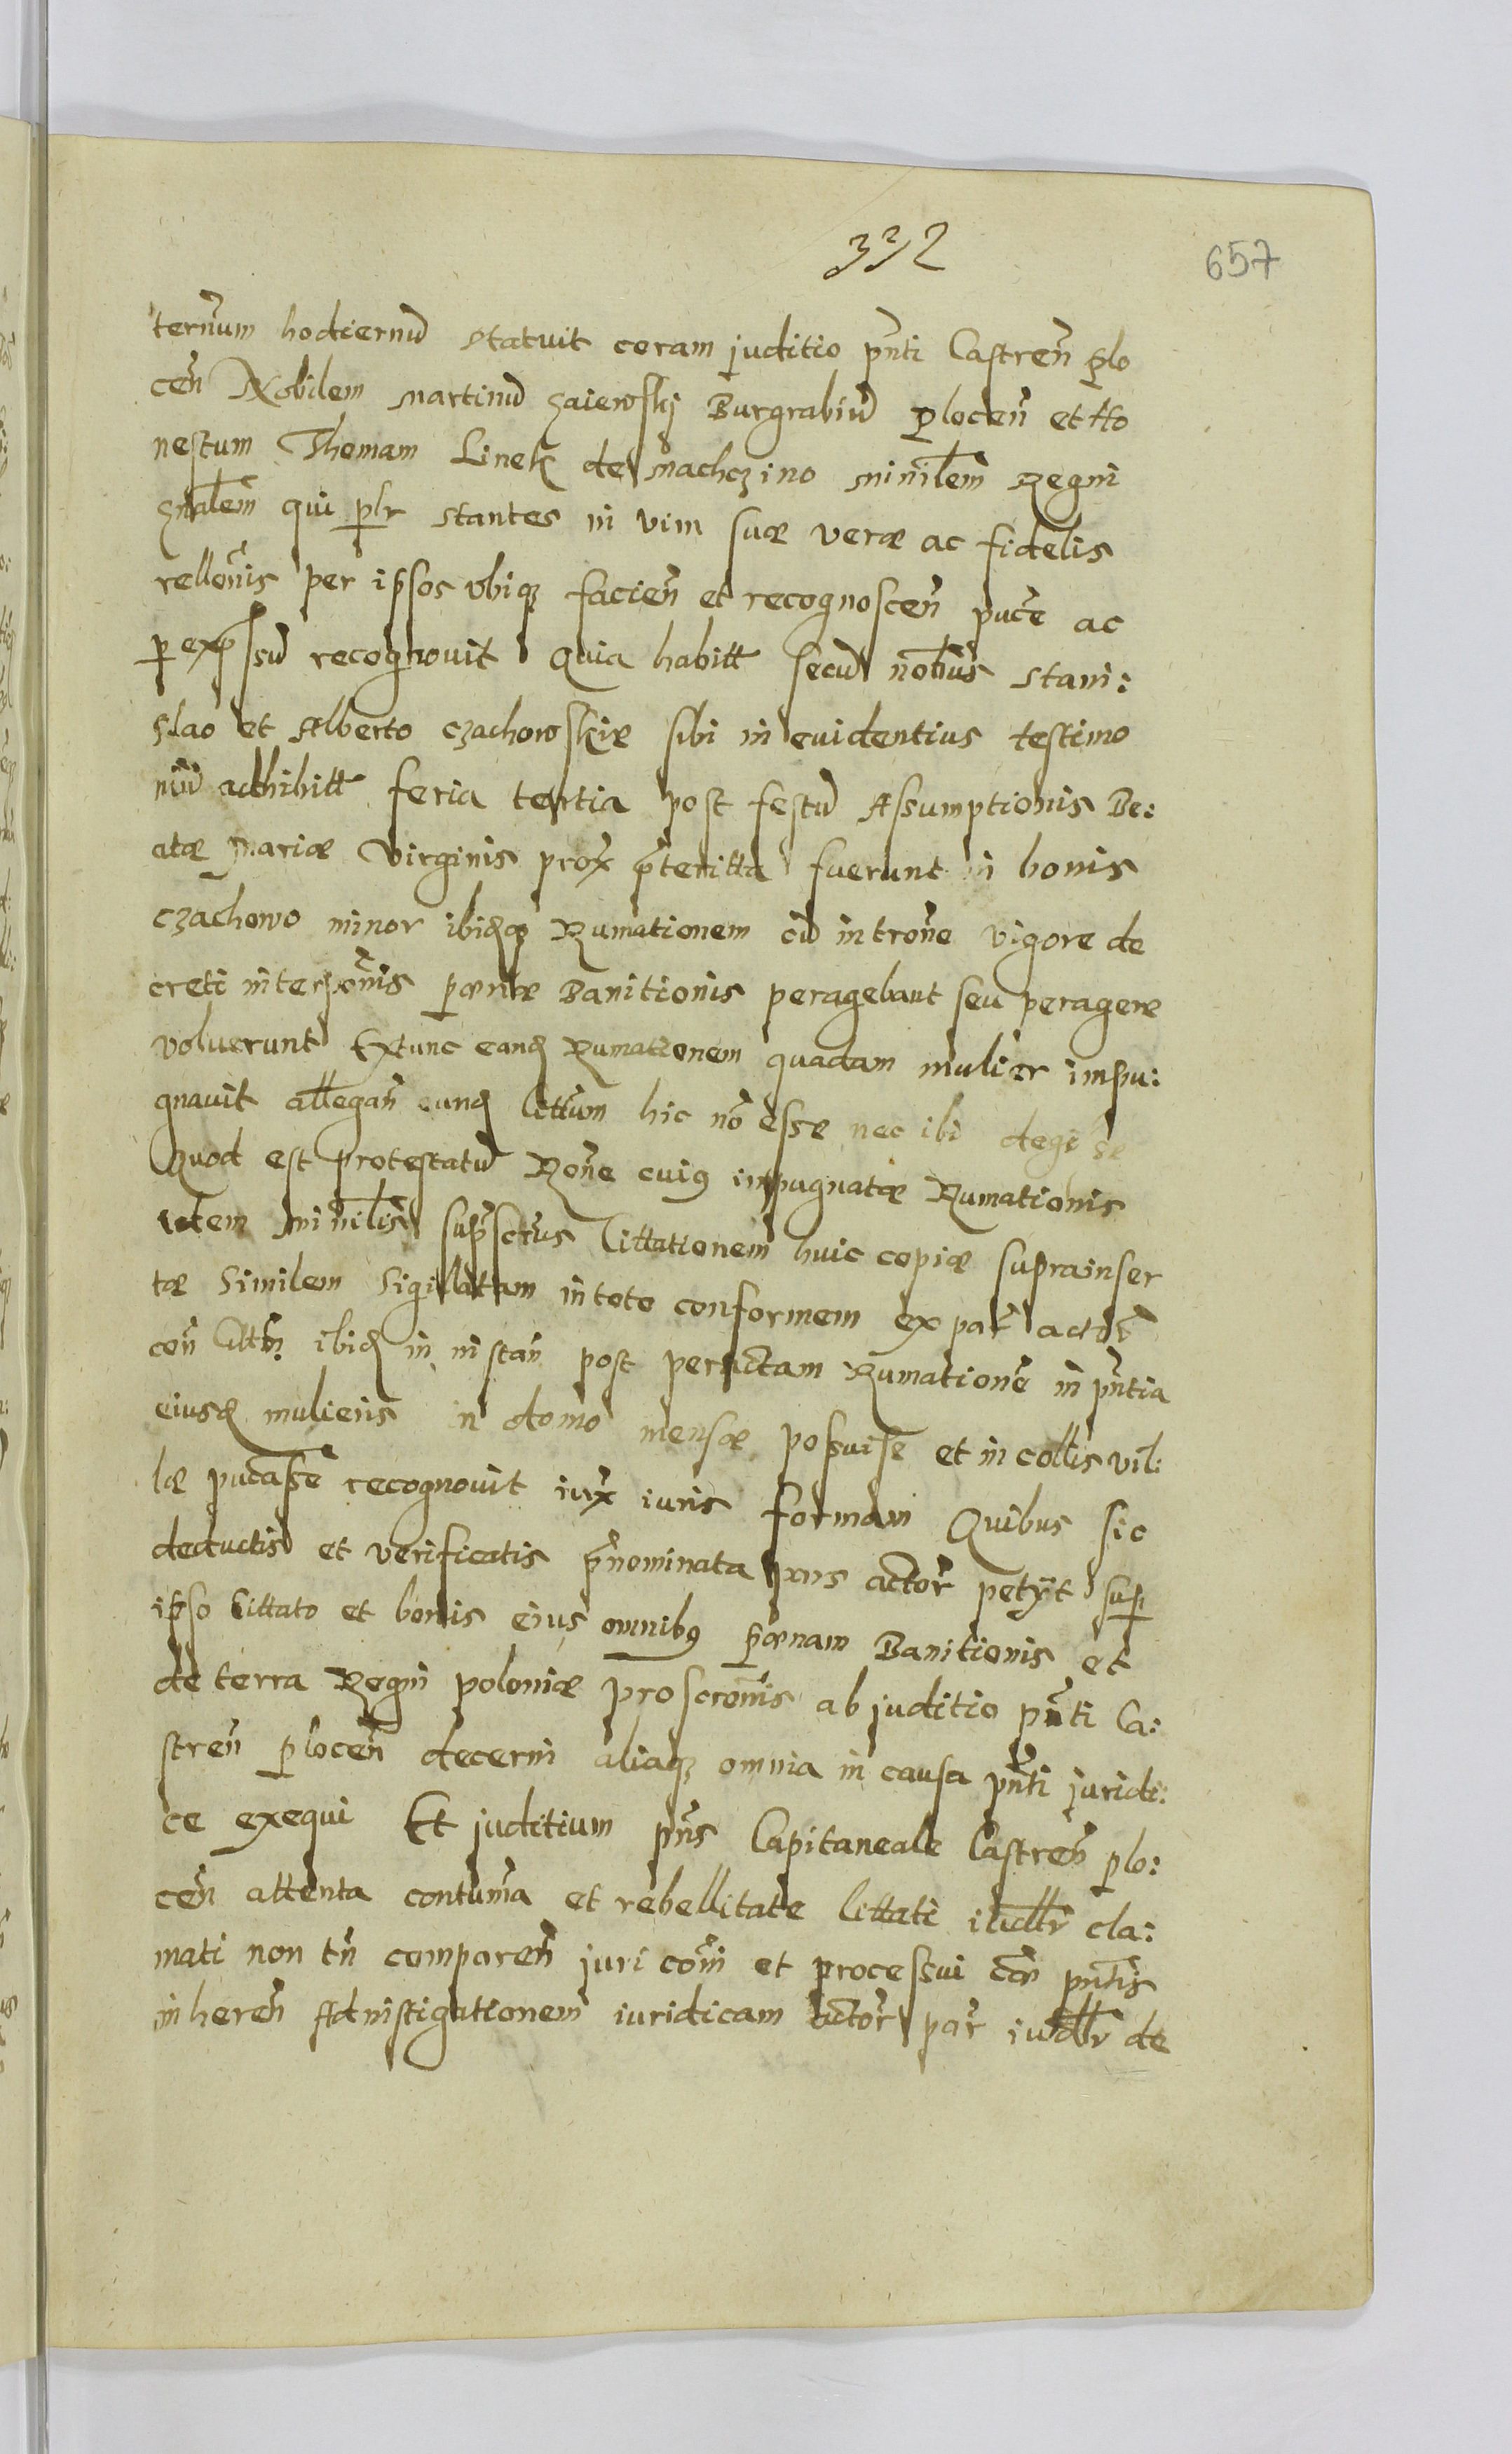 332
657
ternum hodiernū statuit coram juditio pñti Castreñ plo
ceñ Nobilem Martinū Zaiewskj Burgrabiū ploceñ et Ho
nestum Thomam Linek de Machczino minilem Regni
gnalem qui plr stantes in vim suæ veræ ac fidelis
rellonis per ipsos vbiq facieñ et recognosceñ puce ac
per expssū recognouit Quia habitt secū nobilibus Stani:
slao et Alberto Czachowskie sibi in euidentius testimo
niū adhibitt feria tertia post festū Assumptionis Be:
atæ Mariæ Virginis prox pterittа fuerunt in bonis
Czachowo minor ibidq Rumationem cū introne vigore de
creti interpōnis pœnæ Banitionis peragebant seu peragere
voluerunt Extunc eand Rumationem quadam mulier impu:
gnauit allegañ eund Cittum hic nō esse nec ibi degi se
Quod est protestatū Rone cuig impugnatæ Rumationis
idem minilis suprsctus Cittationem huic copiæ suprainser
tæ similem sigillatam in toto conformem ex par actor
coñ Citt ibid in instañ post peractam Rumationē in pñtia
eiusd mulieris in domo mensæ possuisse et in collis vil:
læ pucasse recognouit iux iuris formam Quibus sic
deductis et verificatis pnominata prs actor petyt sup
ipso Cittato et bonis eius omnibg pœnam Banitionis et
de terra Regni poloniæ proscronis ab juditio pñti Ca:
streñ ploceñ decerni aliaq omnia in causa pñti juridi:
ce exequi Et juditium pñs Capitaneale Castreñ plo:
ceñ attenta contuma et rebellitate Cittati iudlr cla:
mati non tñ compareñ juri com et processui cau pñtis
inhereñ Ad instigationem iuridicam actor par iudlr de